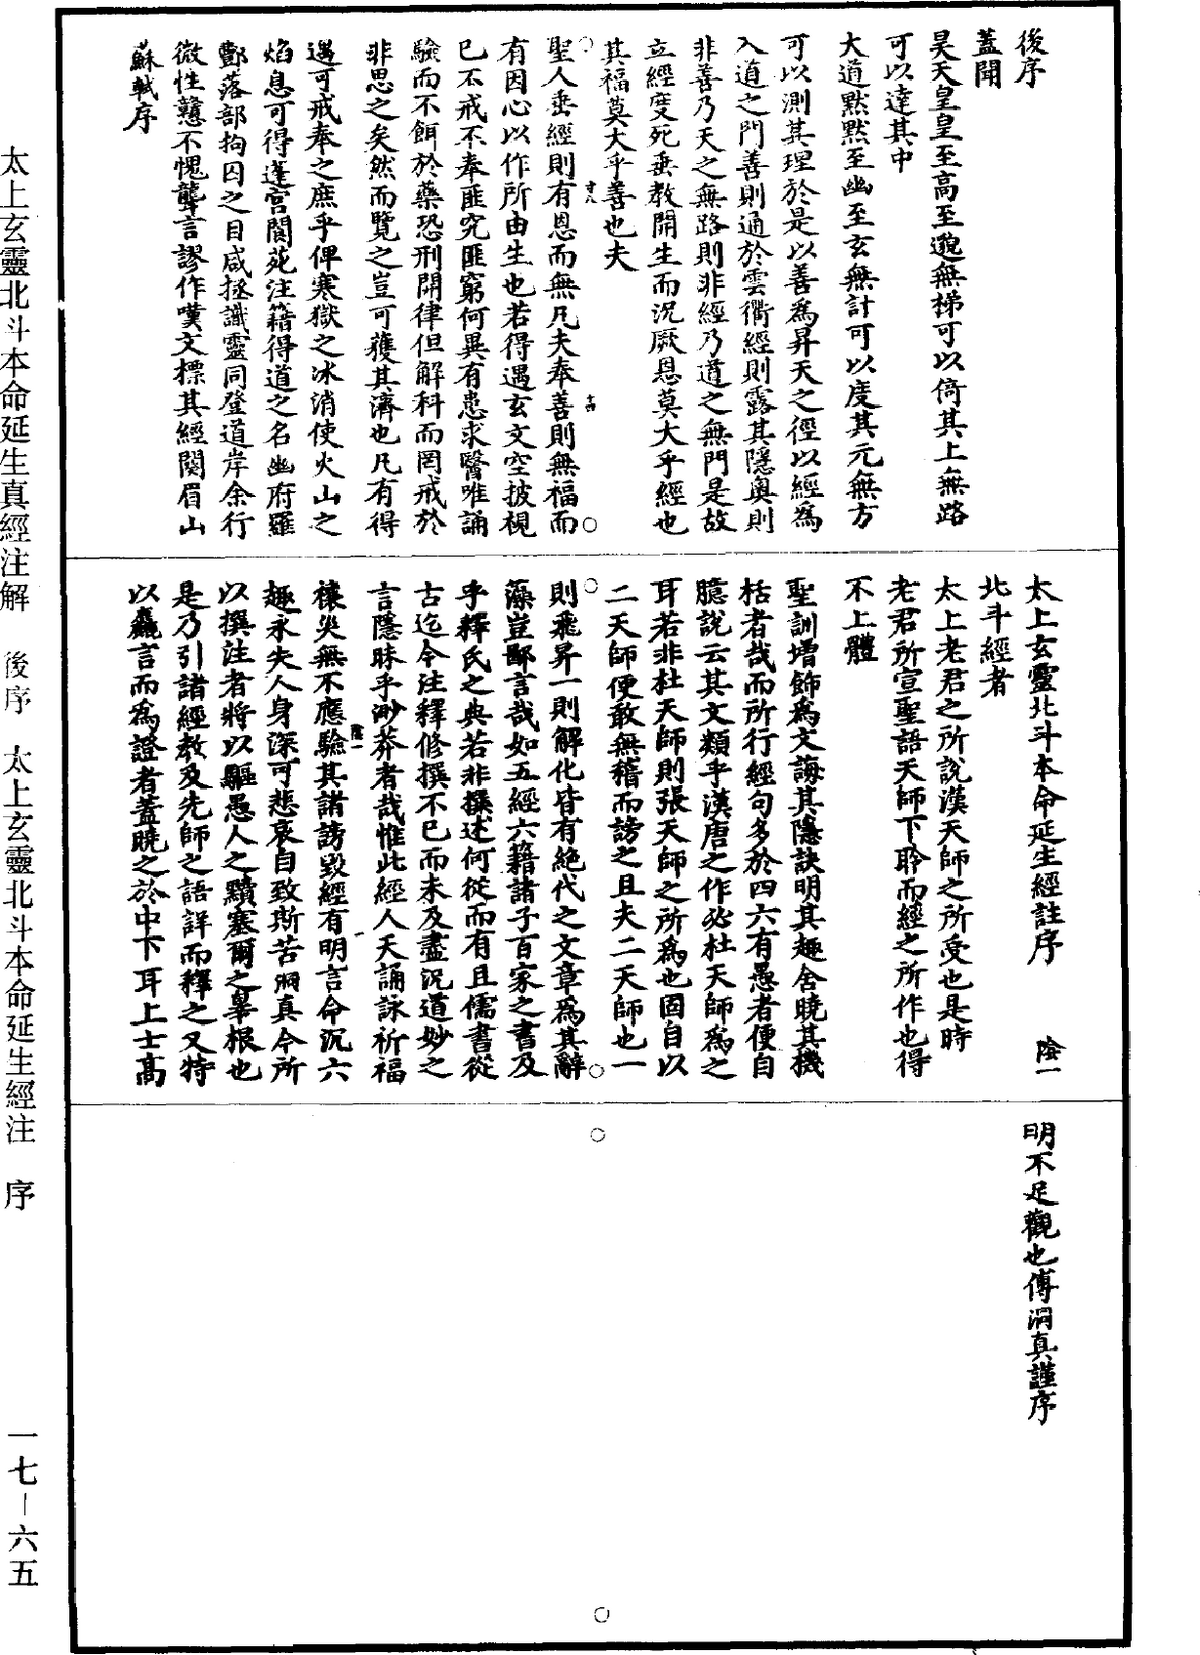 後序
蓋聞
昊天皇皇至高至邈無梯可以倚其上無路
可以達其中
大道默默至幽至玄無計可以度其元無方
可以測其理於是以善為昇天之徑以經為
入道之門善則通於雲衢經則露其隱奧則
非善乃天之無路則非經乃道之無門是故
立經度死垂教開生而沉厥恩莫大乎經也
其福莫大乎善也夫
聖人垂經則有恩而無凡夫奉善則無福而
有因心以作所由生也若得遇玄文空披視
已不戒不奉匪究匪窮何異有患求醫唯誦
驗而不餌於藥恐刑開律但解科而罔戒於
非思之矣然而覽之豈可獲其濟也凡有得
遇可戒奉之庶乎俾寒獄之冰消使火山之
焰息可得逢宮閬苑注籍得道之名幽府羅
酆落部拘囚之目咸拯識靈同登道岸余行
微性戇不愧聾言謬作嘆文標其經闋眉山
蘇軾序
太上玄靈北斗本命延生經註序 陰一
北斗經者
太上老君之所說漢天師之所受也是時
老君所宣聖語天師下聆而經之所作也得
不上體
聖訓增飾為文誨其隱訣明其趣舍曉其機
栝者哉而所行經句多於四六有愚者便自
臆說云其文類乎漢唐之作必杜天師為之
耳若非杜天師則張天師之所為也固自以
二天師便敢無稽而謗之且夫二天師也一
則飛昇一則解化皆有絕代之文章為其辭
藻豈鄙言哉如五經六籍諸子百家之書及
乎釋氏之典若非撰述何從而有且儒書從
古迄今注釋修撰不已而未及盡況道妙之
言隱昧乎渺莽者哉惟此經人天誦詠祈福
禳災無不應驗其諸謗毀經有明言命沉六
趣永失人身深可悲哀自致斯苦洞真今所
以撰注者將以驅愚人之黷塞爾之辠根也
是乃引諸經教及先師之語詳而釋之又特
以麤言而為證者蓋曉之於中下耳上士高
明不足觀也傅洞真謹序
太上玄靈北斗本命延生真經注解 後序 太上玄靈北斗本命延生經注 序
一七—六五